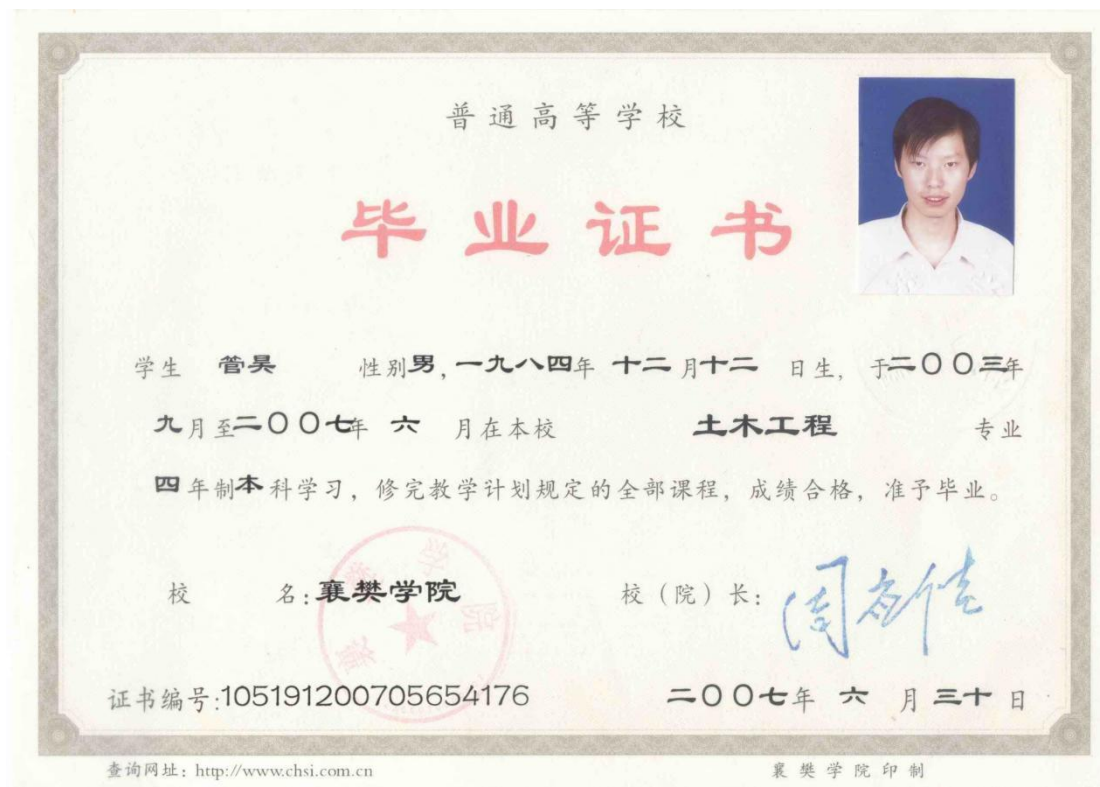 普通高等学校
毕业证书
学生 管昊 性别男，一九八四年 十二月十二 日生，于二〇〇三年
九月至二〇〇七年 六 月在本校 土木工程 专业
四年制本科学习，修完教学计划规定的全部课程，成绩合格，准予毕业。
校 名：襄樊学院 校（院）长：
襄樊学院
证书编号：105191200705654176 二〇〇七年 六 月三十日
查询网址：http://www.chsi.com.cn 襄樊学院印制